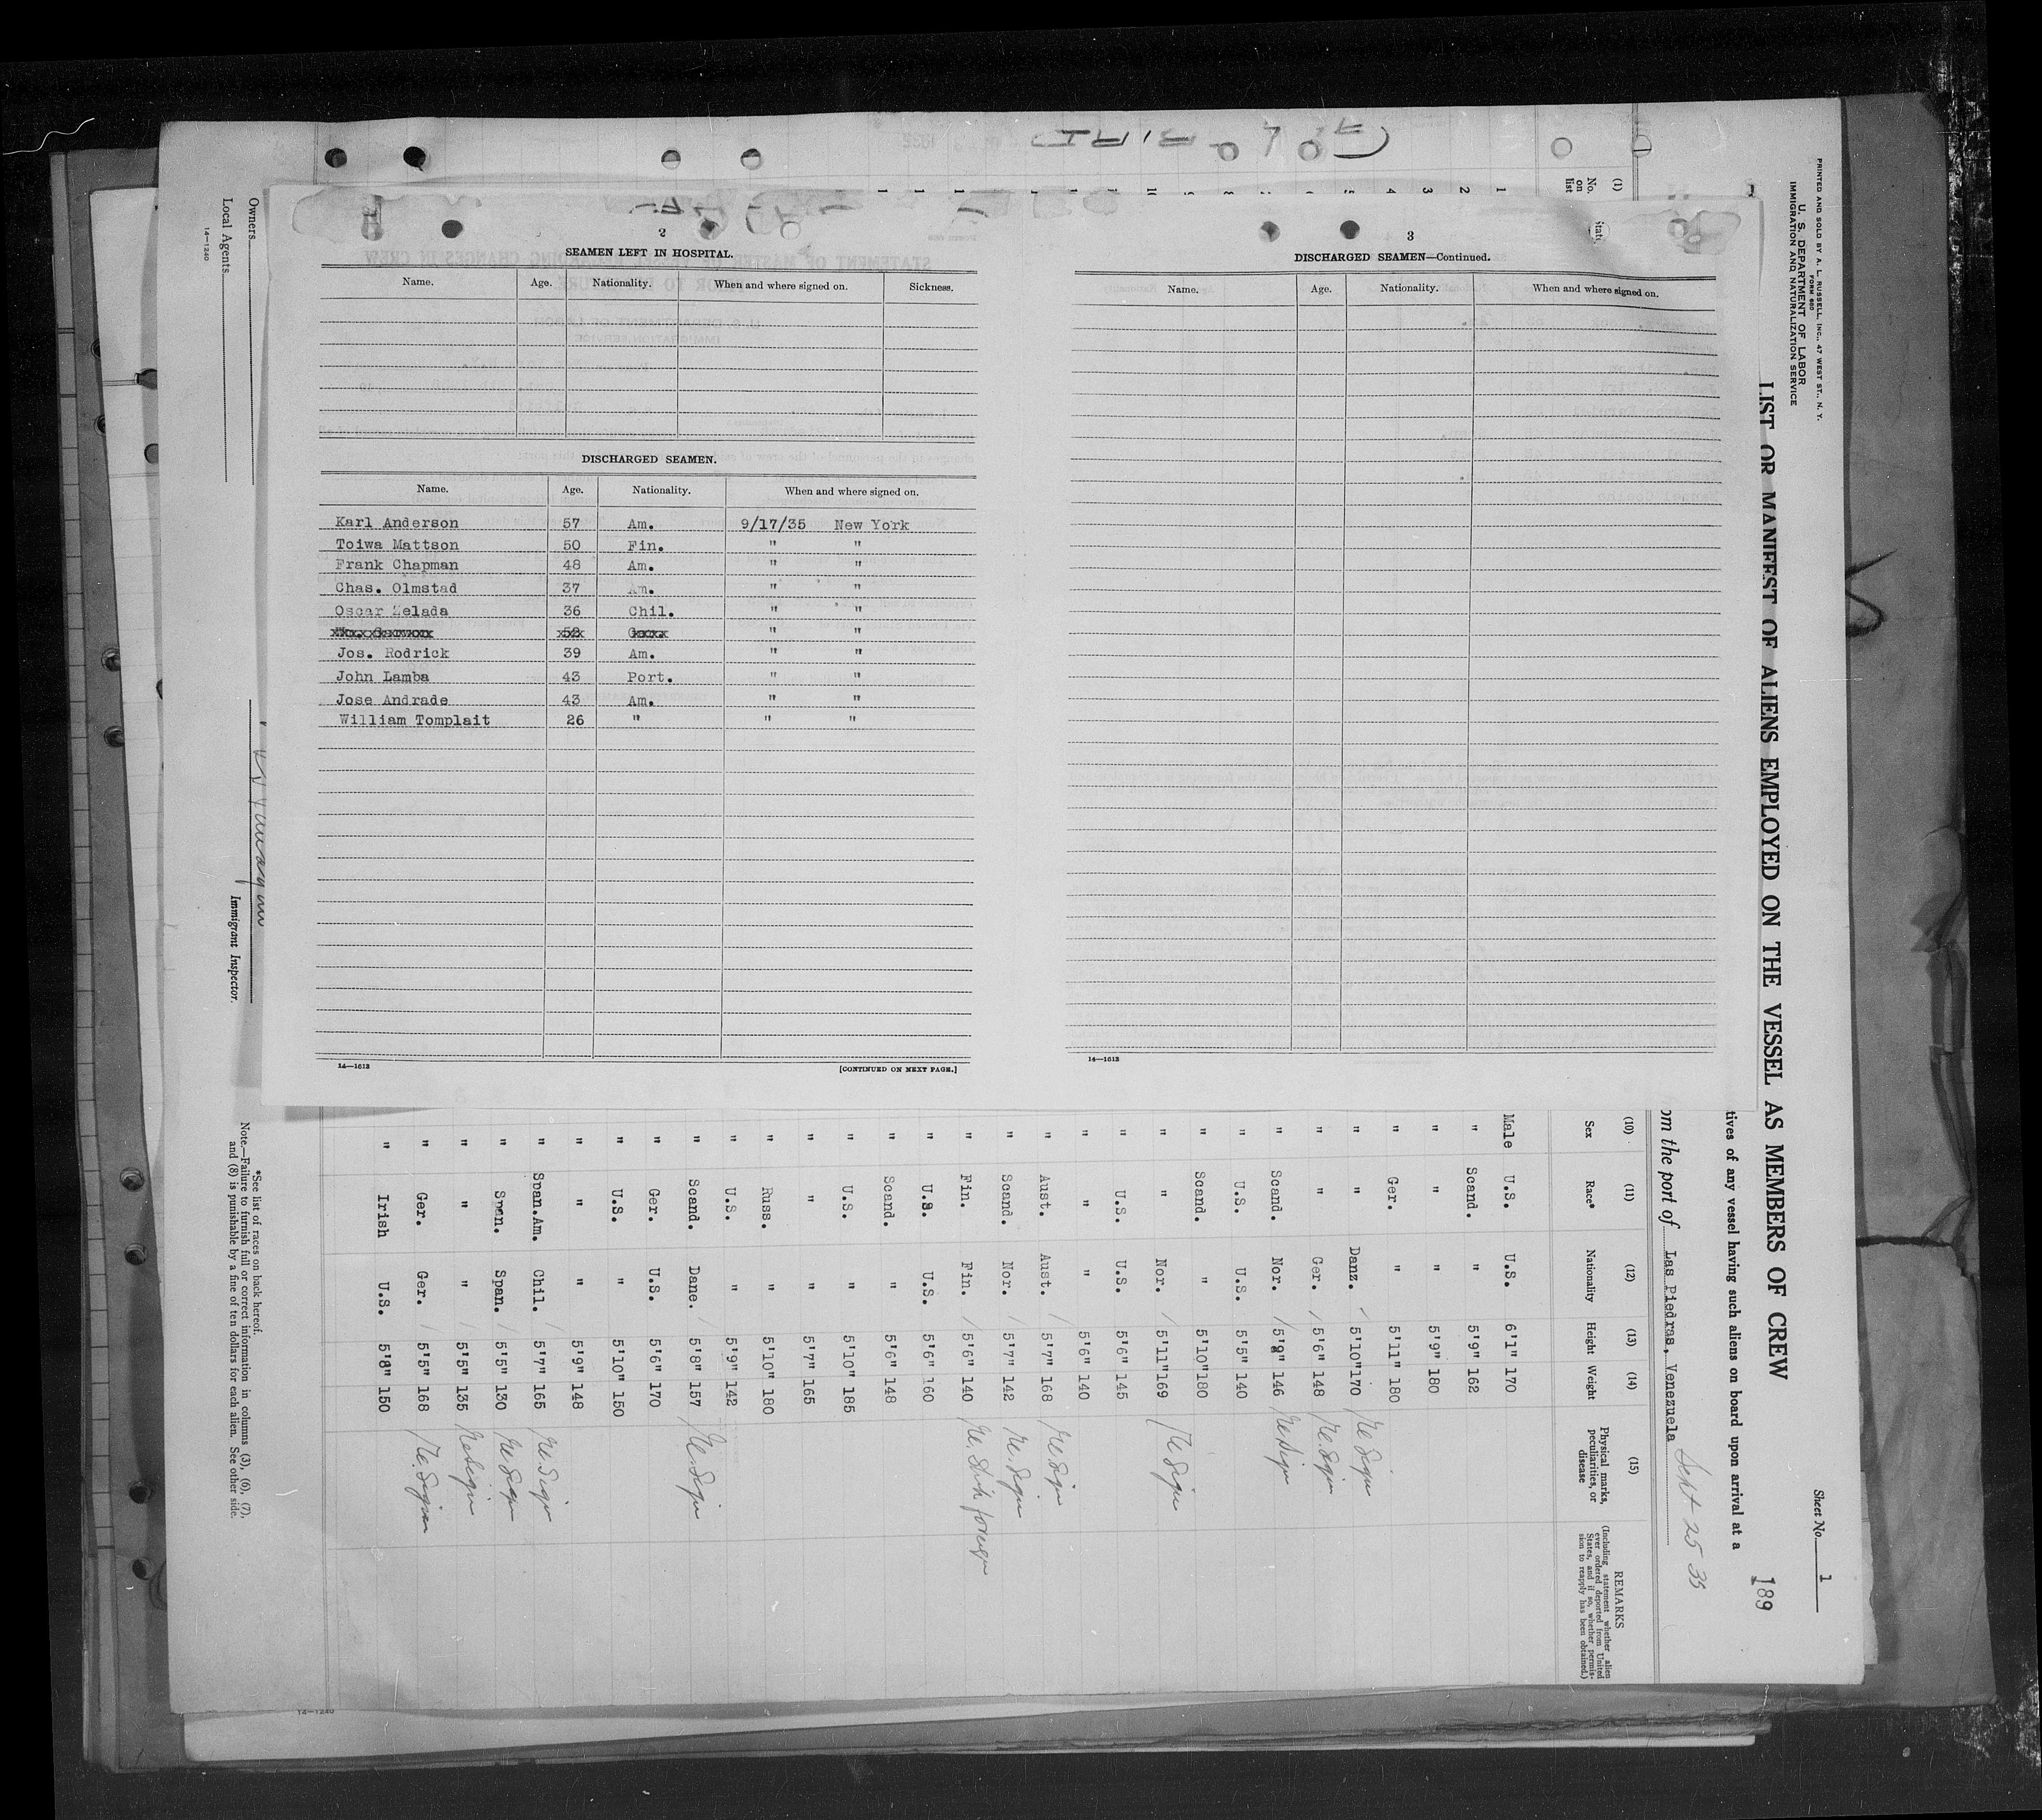 2
SEAMEN LEFT IN HOSPITAL.
Name. Age. Nationality. When and where signed on. Sickness.
DISCHARGED SEAMEN.
Name. Age. Nationality. When and where signed on.
Karl Anderson 57 Am. 9/17/35 New York
Toiwa Mattson 50 Fin. " "
Frank Chapman 48 Am. " "
Chas. Olmstad 37 Am. " "
Oscar Zelada 36 Chil. " "
" "
Jos. Rodrick 39 Am. " "
John Lamba 43 Port. " "
Jose Andrade 43 Am. " "
William Tomplait 26 " " "
14—1613
[CONTINUED ON NEXT PAGE.]
3
DISCHARGED SEAMEN—Continued.
Name. Age. Nationality. When and where signed on.
14—1613
PRINTED AND SOLD BY A. L. RUSSELL, INC., 47 WEST ST., N. Y.
FORM 680
U. S. DEPARTMENT OF LABOR
IMMIGRATION AND NATURALIZATION SERVICE
Sheet No. 1
189
LIST OR MANIFEST OF ALIENS EMPLOYED ON THE VESSEL AS MEMBERS OF CREW
tives of any vessel having such aliens on board upon arrival at a
om the port of Las Piedras, Venezuela Sept 25 35
(1) (10) (11) (12) (13) (14) (15)
No. on list
Sex Race* Nationality Height Weight
Physical marks, peculiarities, or disease
REMARKS
(Including statement whether alien ever ordered deported from United States, and if so, whether permission to reapply has been obtained.)
1 Male U.S. U.S. 6'1" 170
2 " Scand. " 5'9" 162
3 " " " 5'9" 180
4 " Ger. " 5'11" 180
5 " " Danz. 5'10" 170 Ne. Sign
" " Ger. 5'6" 148 Ne. Sign
" Scand. Nor. 5'9" 146 Ne Sign
8 " U.S. U.S. 5'5" 140
" Scand. " 5'10" 180
" " Nor. 5'11" 169 Ne Sign
" U.S. U.S. 5'6" 145
" " " 5'6" 140
" Aust. Aust. 5'7" 168 Ne Sign
" Scand. Nor. 5'7" 142 Ne. Sign
" Fin. Fin. 5'6" 140
" U.S. U.S. 5'6" 160
" Scand. " 5'6" 148
" U.S. " 5'10" 185
" " " 5'7" 165
" Russ. " 5'10" 180
" U.S. " 5'9" 142
" Scand. Dane. 5'8" 157 Ne. Sign
" Ger. U.S. 5'6" 170
" U.S. " 5'10" 150
" " " 5'9" 148
" Span.Am. Chil. 5'7" 165 Ne. Sign
" Span. Span. 5'5" 130 Ne Sign
" " " 5'5" 135 Ne Sign
" Ger. Ger. 5'5" 168 Ne. Sign
" Irish U.S. 5'8" 150
*See list of races on back hereof.
Note.—Failure to furnish full or correct information in columns (3), (6), (7),
and (8) is punishable by a fine of ten dollars for each alien. See other side.
Owners
Local Agents
14—1240
Immigrant Inspector.
14—1240